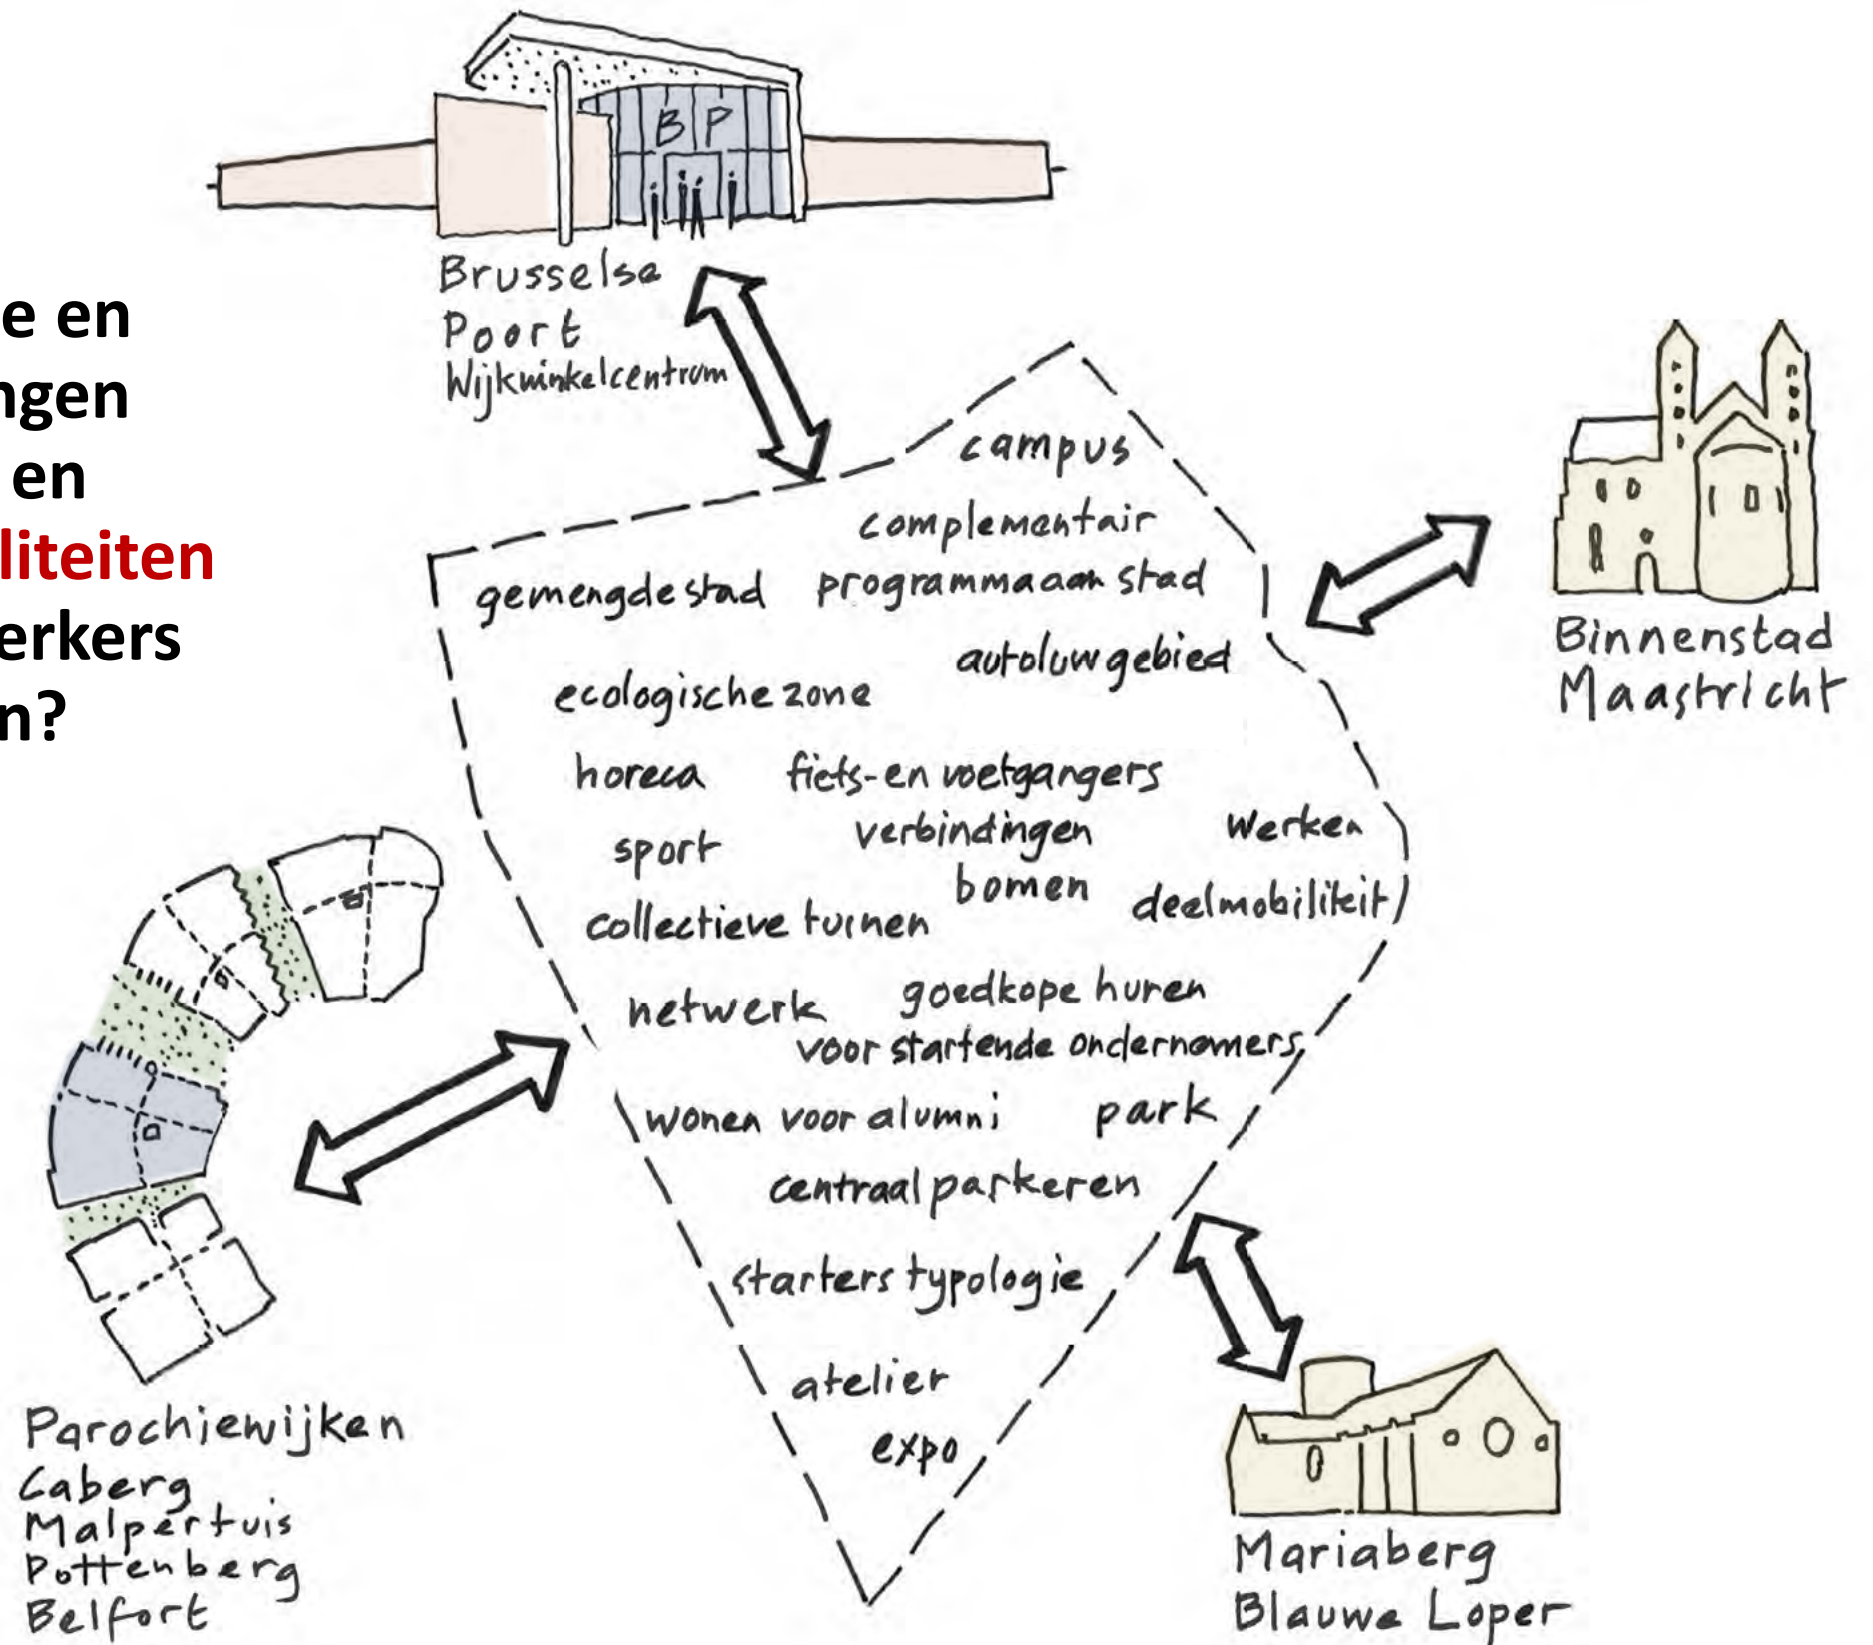 e en
ngen
en
liteiten
erkers
n?
B P
Brusselse
Poort
Wijkwinkelcentrum
campus
complementair
programma aan stad
gemengde stad
autoluw gebied
ecologische zone
horeca
fiets- en voetgangers
verbindingen
werken
sport
bomen
deelmobiliteit
collectieve tuinen
netwerk
goedkope huren
voor startende ondernemers
wonen voor alumni
park
centraal parkeren
starters typologie
atelier
expo
Binnenstad
Maastricht
Parochiewijken
Caberg
Malpertuis
Pottenberg
Belfort
Mariaberg
Blauwe Loper